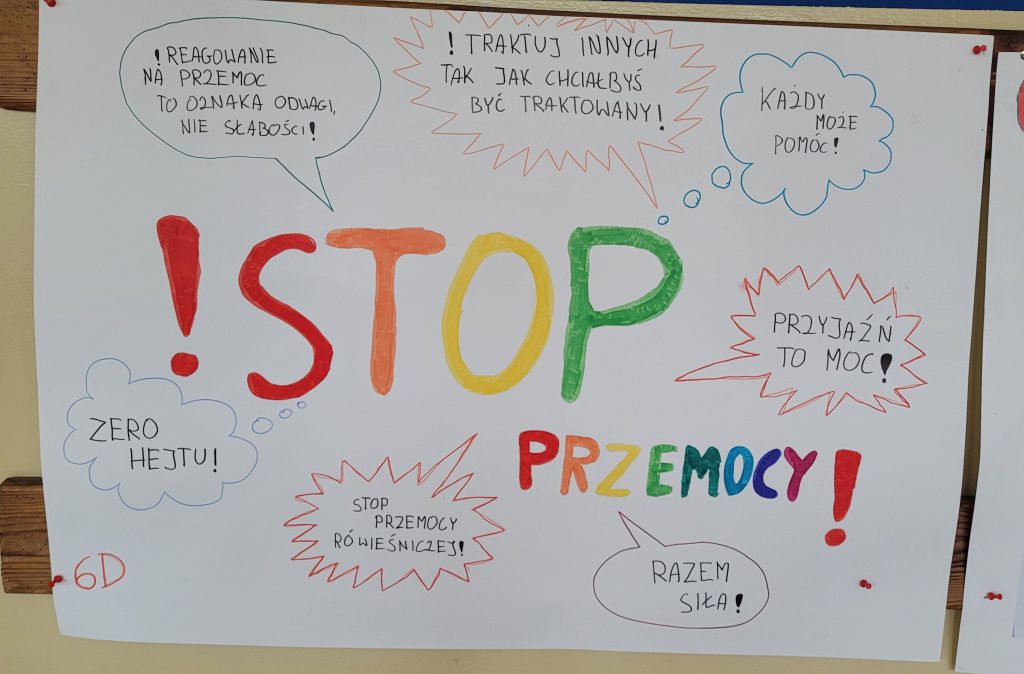 ! REAGOWANIE
NA PRZEMOC
TO OZNAKA ODWAGI,
NIE SŁABOŚCI!
! TRAKTUJ INNYCH
TAK JAK CHCIAŁBYŚ
BYĆ TRAKTOWANY!
KAŻDY
MOŻE
POMÓC!
! STOP
PRZYJAŹŃ
TO MOC!
ZERO
HEJTU!
PRZEMOCY!
STOP
PRZEMOCY
RÓWIEŚNICZEJ!
RAZEM
SIŁA!
6D